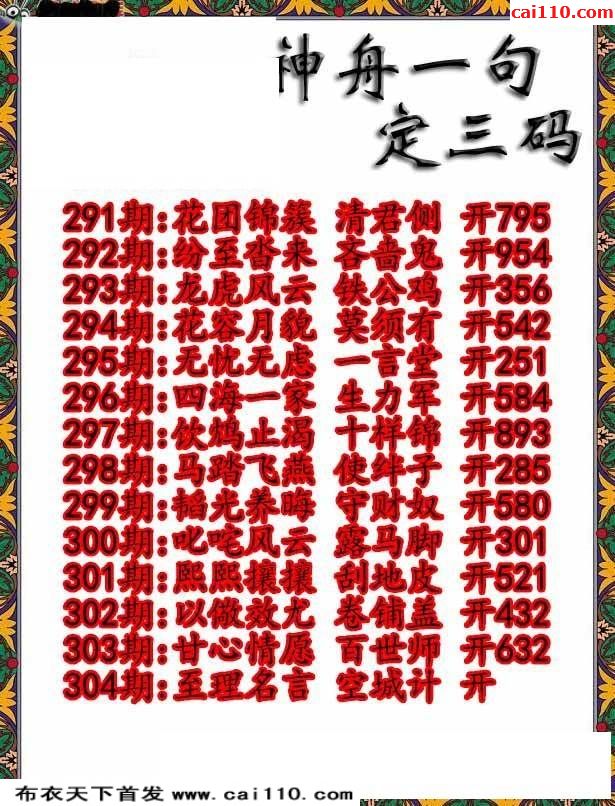 cai110.com
神舟一句
定三码
291期:花团锦簇 清君侧 开795
292期:纷至沓来 吝啬鬼 开954
293期:龙虎风云 铁公鸡 开356
294期:花容月貌 莫须有 开542
295期:无忧无虑 一言堂 开251
296期:四海一家 生力军 开584
297期:饮鸩止渴 十样锦 开893
298期:马踏飞燕 使绊子 开285
299期:韬光养晦 守财奴 开580
300期:叱咤风云 露马脚 开301
301期:熙熙攘攘 刮地皮 开521
302期:以儆效尤 卷铺盖 开432
303期:甘心情愿 百世师 开632
304期:至理名言 空城计 开
布衣天下首发 www.cai110.com